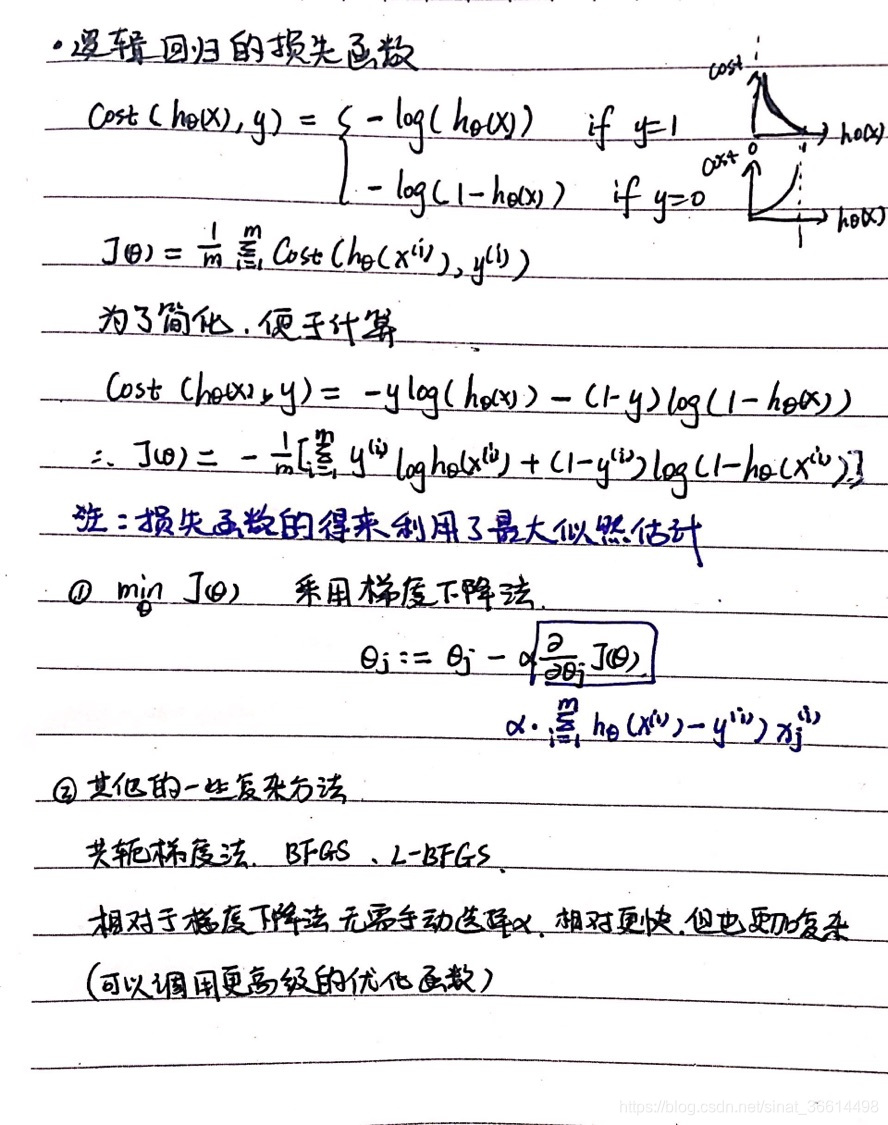 ·逻辑回归的损失函数
Cost(hθ(x), y) = { -log(hθ(x)) if y=1
-log(1-hθ(x)) if y=0
cost
hθ(x)
0 1
cost
hθ(x)
J(θ) = 1/m Σ_{i=1}^{m} Cost(hθ(x^(i)), y^(i))
为了简化,便于计算
Cost(hθ(x), y) = -ylog(hθ(x)) - (1-y)log(1-hθ(x))
∴ J(θ) = -1/m[Σ_{i=1}^{m} y^(i) log hθ(x^(i)) + (1-y^(i))log(1-hθ(x^(i)))]
注:损失函数的得来利用了最大似然估计
① min_θ J(θ) 采用梯度下降法.
θj := θj - α ∂/∂θj J(θ)
α · Σ_{i=1}^{m} hθ(x^(i)) - y^(i)) xj^(i)
② 其他的一些复杂方法
共轭梯度法. BFGS、L-BFGS、
相对于梯度下降法无需手动选择α. 相对更快.但也更加复杂
(可以调用更高级的优化函数)
https://blog.csdn.net/sinat_36614498